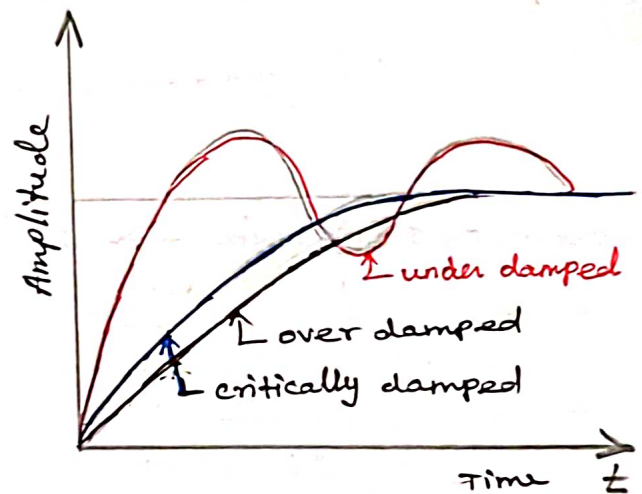 Amplitude
under damped
over damped
critically damped
Time t